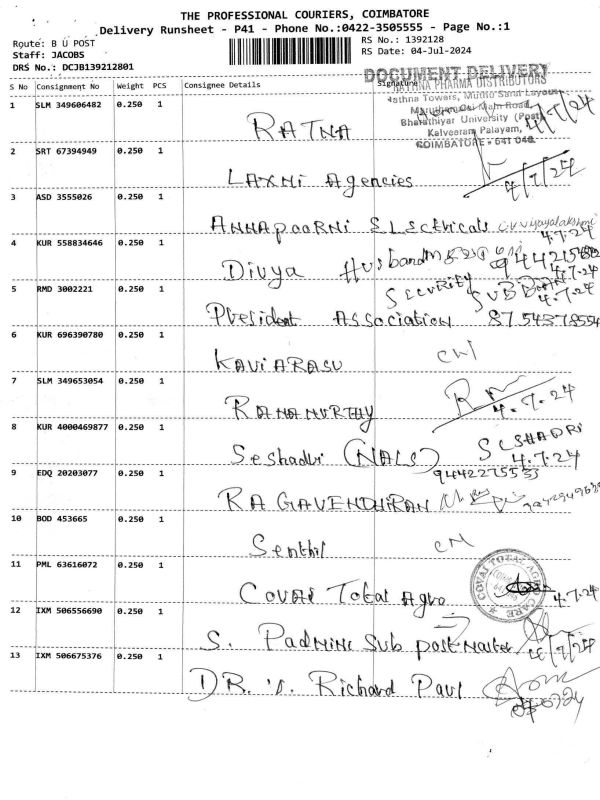 THE PROFESSIONAL COURIERS, COIMBATORE
Delivery Runsheet - P41 - Phone No.:0422-3505555 - Page No.:1
Route: B U POST
RS No.: 1392128
Staff: JACOBS
RS Date: 04-Jul-2024
DRS No.: DCJB139212801
DOCUMENT DELIVERY
S No Consignment No Weight PCS Consignee Details Signature
RATHNA PHARMA DISTRIBUTORS
Rathna Towers,
Main Road,
Bharathiyar University (Post)
Kalveeram Palayam,
COIMBATORE - 641 046.
1 SLM 349606482 0.250 1 RATNA 4/7/24
2 SRT 67394949 0.250 1 Laxmi Agencies 4/7/24
3 ASD 3555026 0.250 1 Annapoorni Electricals 4.7.24
4 KUR 558834646 0.250 1 Divya Husband 4.7.24
5 RMD 3002221 0.250 1 President Association Security 4.7.24 8754378554
6 KUR 696390780 0.250 1 KAVIARASU
7 SLM 349653054 0.250 1 RAMAMURTHY 4.7.24
8 KUR 4000469877 0.250 1 Seshadri (NALS) SESHADRI 4.7.24
9 EDQ 20203077 0.250 1 RAGAVENDHIRAN
10 BOD 453665 0.250 1 Senthil
11 PML 63616072 0.250 1 Covai Total Agro COVAI TOTAL AGRI CARE 4.7.24
12 IXM 506556690 0.250 1 S. Padmini Sub postmaster
13 IXM 506675376 0.250 1 DR. Richard Paul